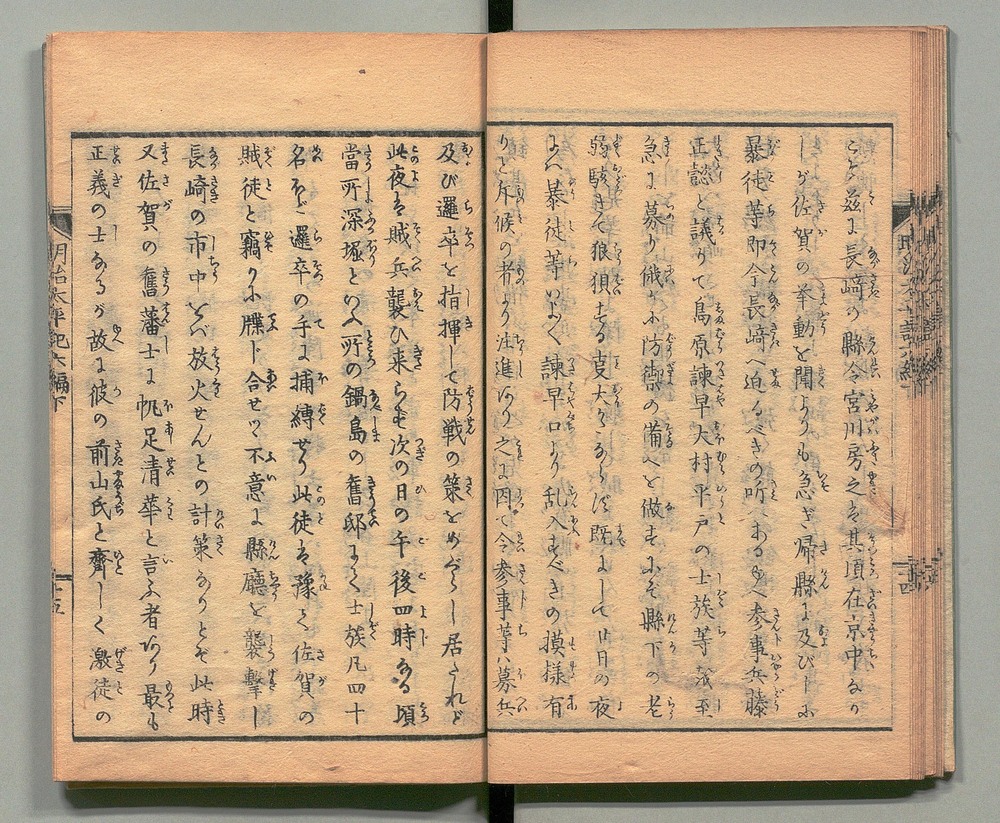 こゝに茲に長崎の縣令宮川房之は其頃在京中なり
しが佐賀の挙動を聞よりも急ぎ帰縣に及びしに
暴徒等即今長崎へ迫るべきの听へあるゆへ参事兵藤
正懿と議りて島原諫早大村平戸の士族等を至
急に募り俄に防御の備へを做すにぞ縣下の老
弱駭きて狼狽する事大かたならず既にして廿日の夜
に入暴徒等いよ〳〵諫早口より乱入すべきの摸様有
りと斥候の者より注進あり之に因て令参事等ハ募兵
及び邏卒を指揮して防戦の策をめぐらし居たれど
此夜は賊兵襲ひ来らず次の日の午後四時ある頃
當所深堀といふ所の鍋島の舊邸より士族凡四十
名ほど邏卒の手に捕縛せり此徒は豫て佐賀の
賊徒と竊かに牒し合せつ不意に縣廳を襲撃し
長崎の市中をバ放火せんとの計策なりとぞ此時
又佐賀の舊藩士に帆足清華と言ふ者あり最も
正義の士なるが故に彼の前山氏と齊しく激徒の
明治太平記六編下
十五